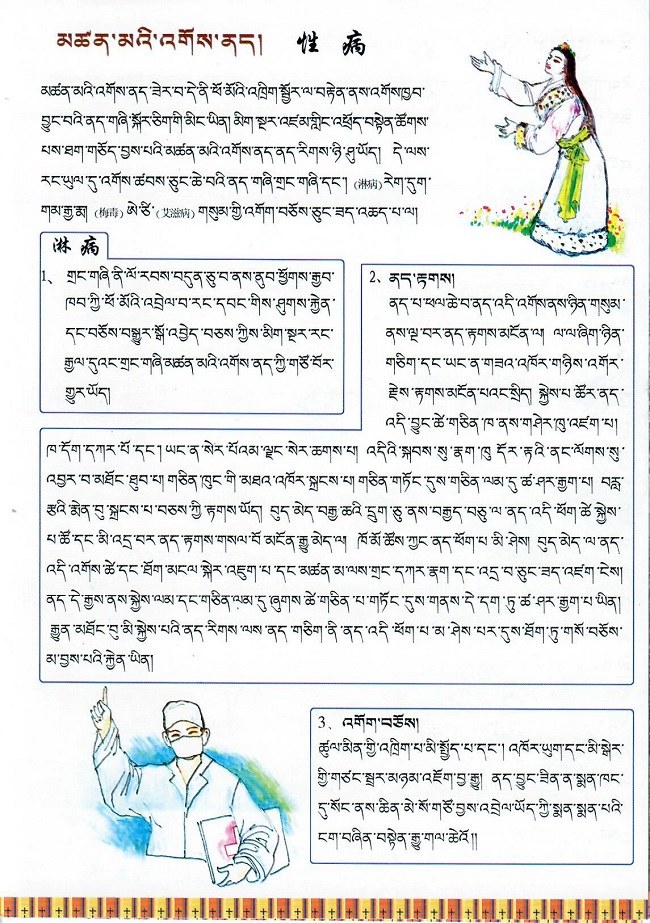 མཚན་མའི་འགོས་ནད། 性病
མཚན་མའི་འགོས་ནད་ཟེར་བ་དེ་ནི་ཕོ་མོའི་འཁྲིག་སྦྱོར་ལ་བརྟེན་ནས་འགོས་ཁྱབ་
བྱུང་བའི་ནད་གཞི་སྐོར་ཅིག་གི་མིང་ཡིན། མིག་སྔར་འཛམ་གླིང་འཕྲོད་བསྟེན་ཚོགས་
པས་ཐག་གཅོད་བྱས་པའི་མཚན་མའི་འགོས་ནད་ནད་རིགས་ཉི་ཤུ་ཡོད། དེ་ལས་
རང་ཡུལ་དུ་འགོས་ཚབས་ཅུང་ཆེ་བའི་ནད་གཞི་གྲང་གཞི་དང་། (淋病) རེག་དུག་
གམ་རྒྱ་རྨ། (梅毒) ཨེ་ཙི་ (艾滋病) གསུམ་གྱི་འགོག་བཅོས་ཅུང་ཟད་འཆད་པ་ལ།
淋病
1、 གྲང་གཞི་ནི་ལོ་རབས་བདུན་ཅུ་བ་ནས་ནུབ་ཕྱོགས་རྒྱབ་
ཁབ་ཀྱི་ཕོ་མོའི་འབྲེལ་བ་རང་དབང་གིས་ཤུགས་རྐྱེན་
དང་བཅོས་བསྒྱུར་སྒོ་འབྱེད་བཅས་ཀྱིས་མིག་སྔར་རང་
རྒྱལ་དུའང་གྲང་གཞི་མཚན་མའི་འགོས་ནད་ཀྱི་གཙོ་བོར་
གྱུར་ཡོད།
2、 ནད་རྟགས།
ནད་པ་ཕལ་ཆེ་བ་ནད་འདི་འགོས་ནས་ཉིན་གསུམ་
ནས་ལྔ་བར་ནད་རྟགས་མངོན་ལ། ལ་ལ་ཞིག་ཉིན་
གཅིག་དང་ཡང་ན་གཟའ་འཁོར་གཉིས་འགོར་
རྗེས་རྟགས་མངོན་པའང་སྲིད། སྐྱེས་པ་ཚོར་ནད་
འདི་བྱུང་ཚེ་གཅིན་ཁ་ནས་གཤེར་ཁུ་འཛག་པ།
ཁ་དོག་དཀར་པོ་དང་། ཡང་ན་སེར་པོའམ་ལྗང་སེར་ཆགས་པ། འདིའི་སྐབས་སུ་རྣག་ཁུ་དོར་རྟའི་ནང་ལོགས་སུ་
འབྱར་བ་མཐོང་ཐུབ་པ། གཅིན་ཁུང་གི་མཐའ་འཁོར་སྐྲངས་པ། གཅིན་གཏོང་དུས་གཅིན་ལམ་དུ་ཚ་ཤར་རྒྱག་པ། བརླ་
རྩའི་རྨེན་བུ་སྐྲངས་པ་བཅས་ཀྱི་རྟགས་ཡོད། བུད་མེད་བརྒྱ་ཆའི་དྲུག་ཅུ་ནས་བརྒྱད་བཅུ་ལ་ནད་འདི་ཕོག་ཚེ་སྐྱེས་
པ་ཚོ་དང་མི་འདྲ་བར་ནད་རྟགས་གསལ་བོ་མངོན་རྒྱུ་མེད་ལ། ཁོ་མོ་ཚོས་ཀྱང་ནད་ཕོག་པ་མི་ཤེས། བུད་མེད་ལ་ནད་
འདི་འགོས་ཚེ་དང་ཐོག་མངལ་སྐེར་འཇུག་པ་དང་མཚན་མ་ལས་གྲང་དཀར་རྣག་དང་འདྲ་བ་ཅུང་ཟད་འཛག་ངེས།
ནད་དེ་རྒྱས་ནས་སྐྱེས་ལམ་དང་གཅིན་ལམ་དུ་ཞུགས་ཚེ་གཅིན་པ་གཏོང་དུས་གནས་དེ་དག་ཏུ་ཚ་ཤར་རྒྱག་པ་ཡིན།
རྒྱུན་མཐོང་བུ་མི་སྐྱེས་པའི་ནད་རིགས་ལས་ནད་གཅིག་ནི་ནད་འདི་ཕོག་པ་མ་ཤེས་པར་དུས་ཐོག་ཏུ་གསོ་བཅོས་
མ་བྱས་པའི་རྐྱེན་ཡིན།
3、 འགོག་བཅོས།
ཚུལ་མིན་གྱི་འཁྲིག་པ་མི་སྤྱོད་པ་དང་། འཁོར་ཡུག་དང་མི་སྒེར་
གྱི་གཙང་སྦྲར་མཉམ་འཇོག་བྱ་རྒྱུ། ནད་བྱུང་ཟིན་ན་སྨན་ཁང་
དུ་སོང་ནས་ཆིན་མེ་སོ་གཙོ་བྱས་འབྲེལ་ཡོད་ཀྱི་སྨན་སྨན་པའི་
ངག་བཞིན་བསྟེན་རྒྱུ་གལ་ཆེའོ།།